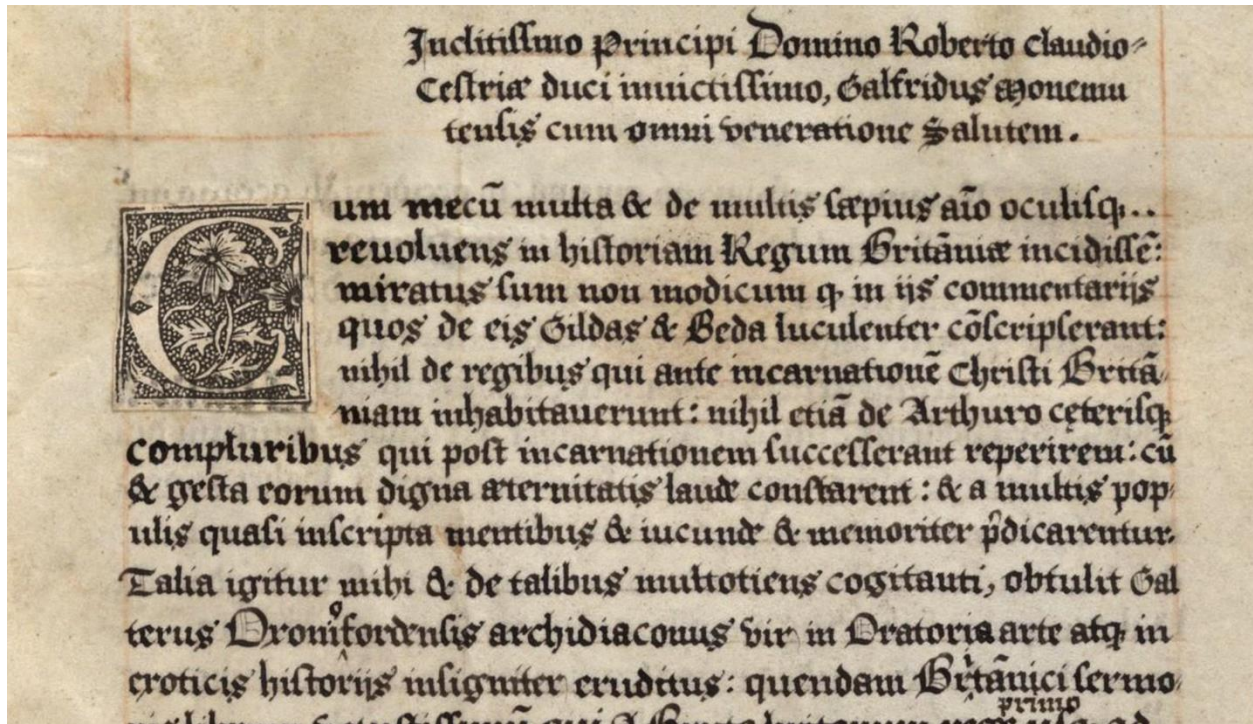 Inclitissimo Principi Domino Roberto Claudio-
Cestriæ duci inuictissimo, Galfridus Monemu
tensis cum omni veneratione Salutem.
Cum mecū multa & de multis sæpius aīo oculisq̧..
reuoluens in historiam Regum Britāniæ incidissē:
miratus sum non modicum q̧ in ijs commentarijs
quos de eis Gildas & Beda luculenter cōscripserant:
nihil de regibus qui ante incarnationē Christi Britā-
niam inhabitauerunt: nihil etiā de Arthuro cęterisq̧
compluribus qui post incarnationem successerant reperirem: cū
& gesta eorum digna æternitatis laude constarent: & a multis pop-
ulis quasi inscripta mentibus & iucunde & memoriter p̄dicarentur.
Talia igitur mihi & de talibus multotiens cogitanti, obtulit Gal
terus Oronifordensis archidiaconus vir in Oratoria arte atq̧ in
eroticis historijs insigniter eruditus: quendam Britānici sermo-
primo